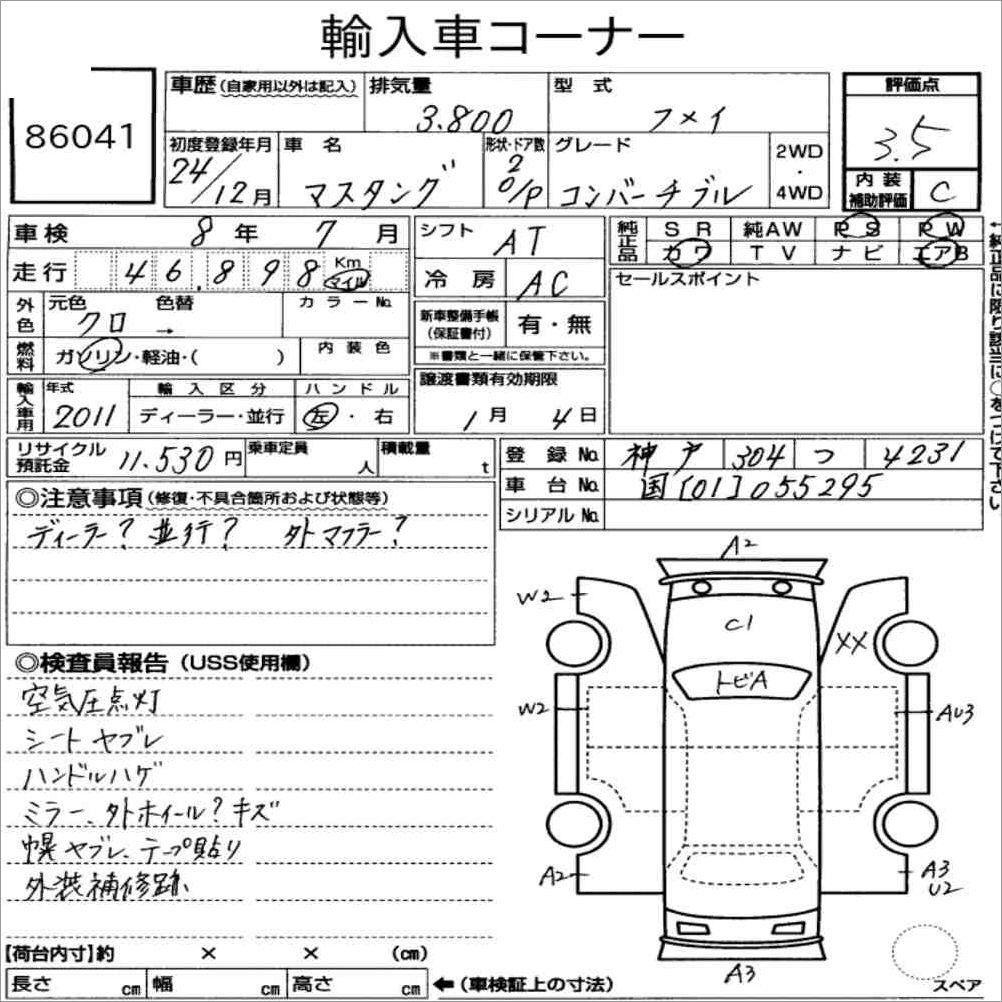 輸入車コーナー
86041
車歴(自家用以外は記入) 排気量 3.800 型式 フメイ 評価点 3.5
初度登録年月 24/12月 車名 マスタング 形状・ドア数 2 O/P グレード コンバーチブル 2WD・4WD 内装補助評価 C
車検 8年 7月 シフト AT 純正品 SR 純AW PS PW
走行 46.898 Km マイル 冷房 AC カワ TV ナビ エアB
外色 元色 クロ 色替 → カラーNo. 新車整備手帳(保証書付) 有・無 セールスポイント
燃料 ガソリン・軽油・( ) 内装色 ※書類と一緒に保管下さい。
輸入車用 年式 2011 輸入区分 ディーラー・並行 ハンドル 左・右 譲渡書類有効期限 1月 4日
リサイクル預託金 11.530円 乗車定員 人 積載量 t 登録No. 神戸 304 つ 4231
車台No. 国[01]055295
シリアルNo.
◎注意事項(修復・不具合箇所および状態等)
ディーラー? 並行? 外マフラー?
◎検査員報告(USS使用欄)
空気圧点灯
シートヤブレ
ハンドルハゲ
ミラー、外ホイール?キズ
幌ヤブレ、テープ貼り
外装補修跡
A2
W2
C1
XX
トビA
W2
AU3
A2
A3
U2
A3
スペア
【荷台内寸】約 × × (cm)
長さ cm 幅 cm 高さ cm ←(車検証上の寸法)
←純正品に限り該当に○をつけて下さい